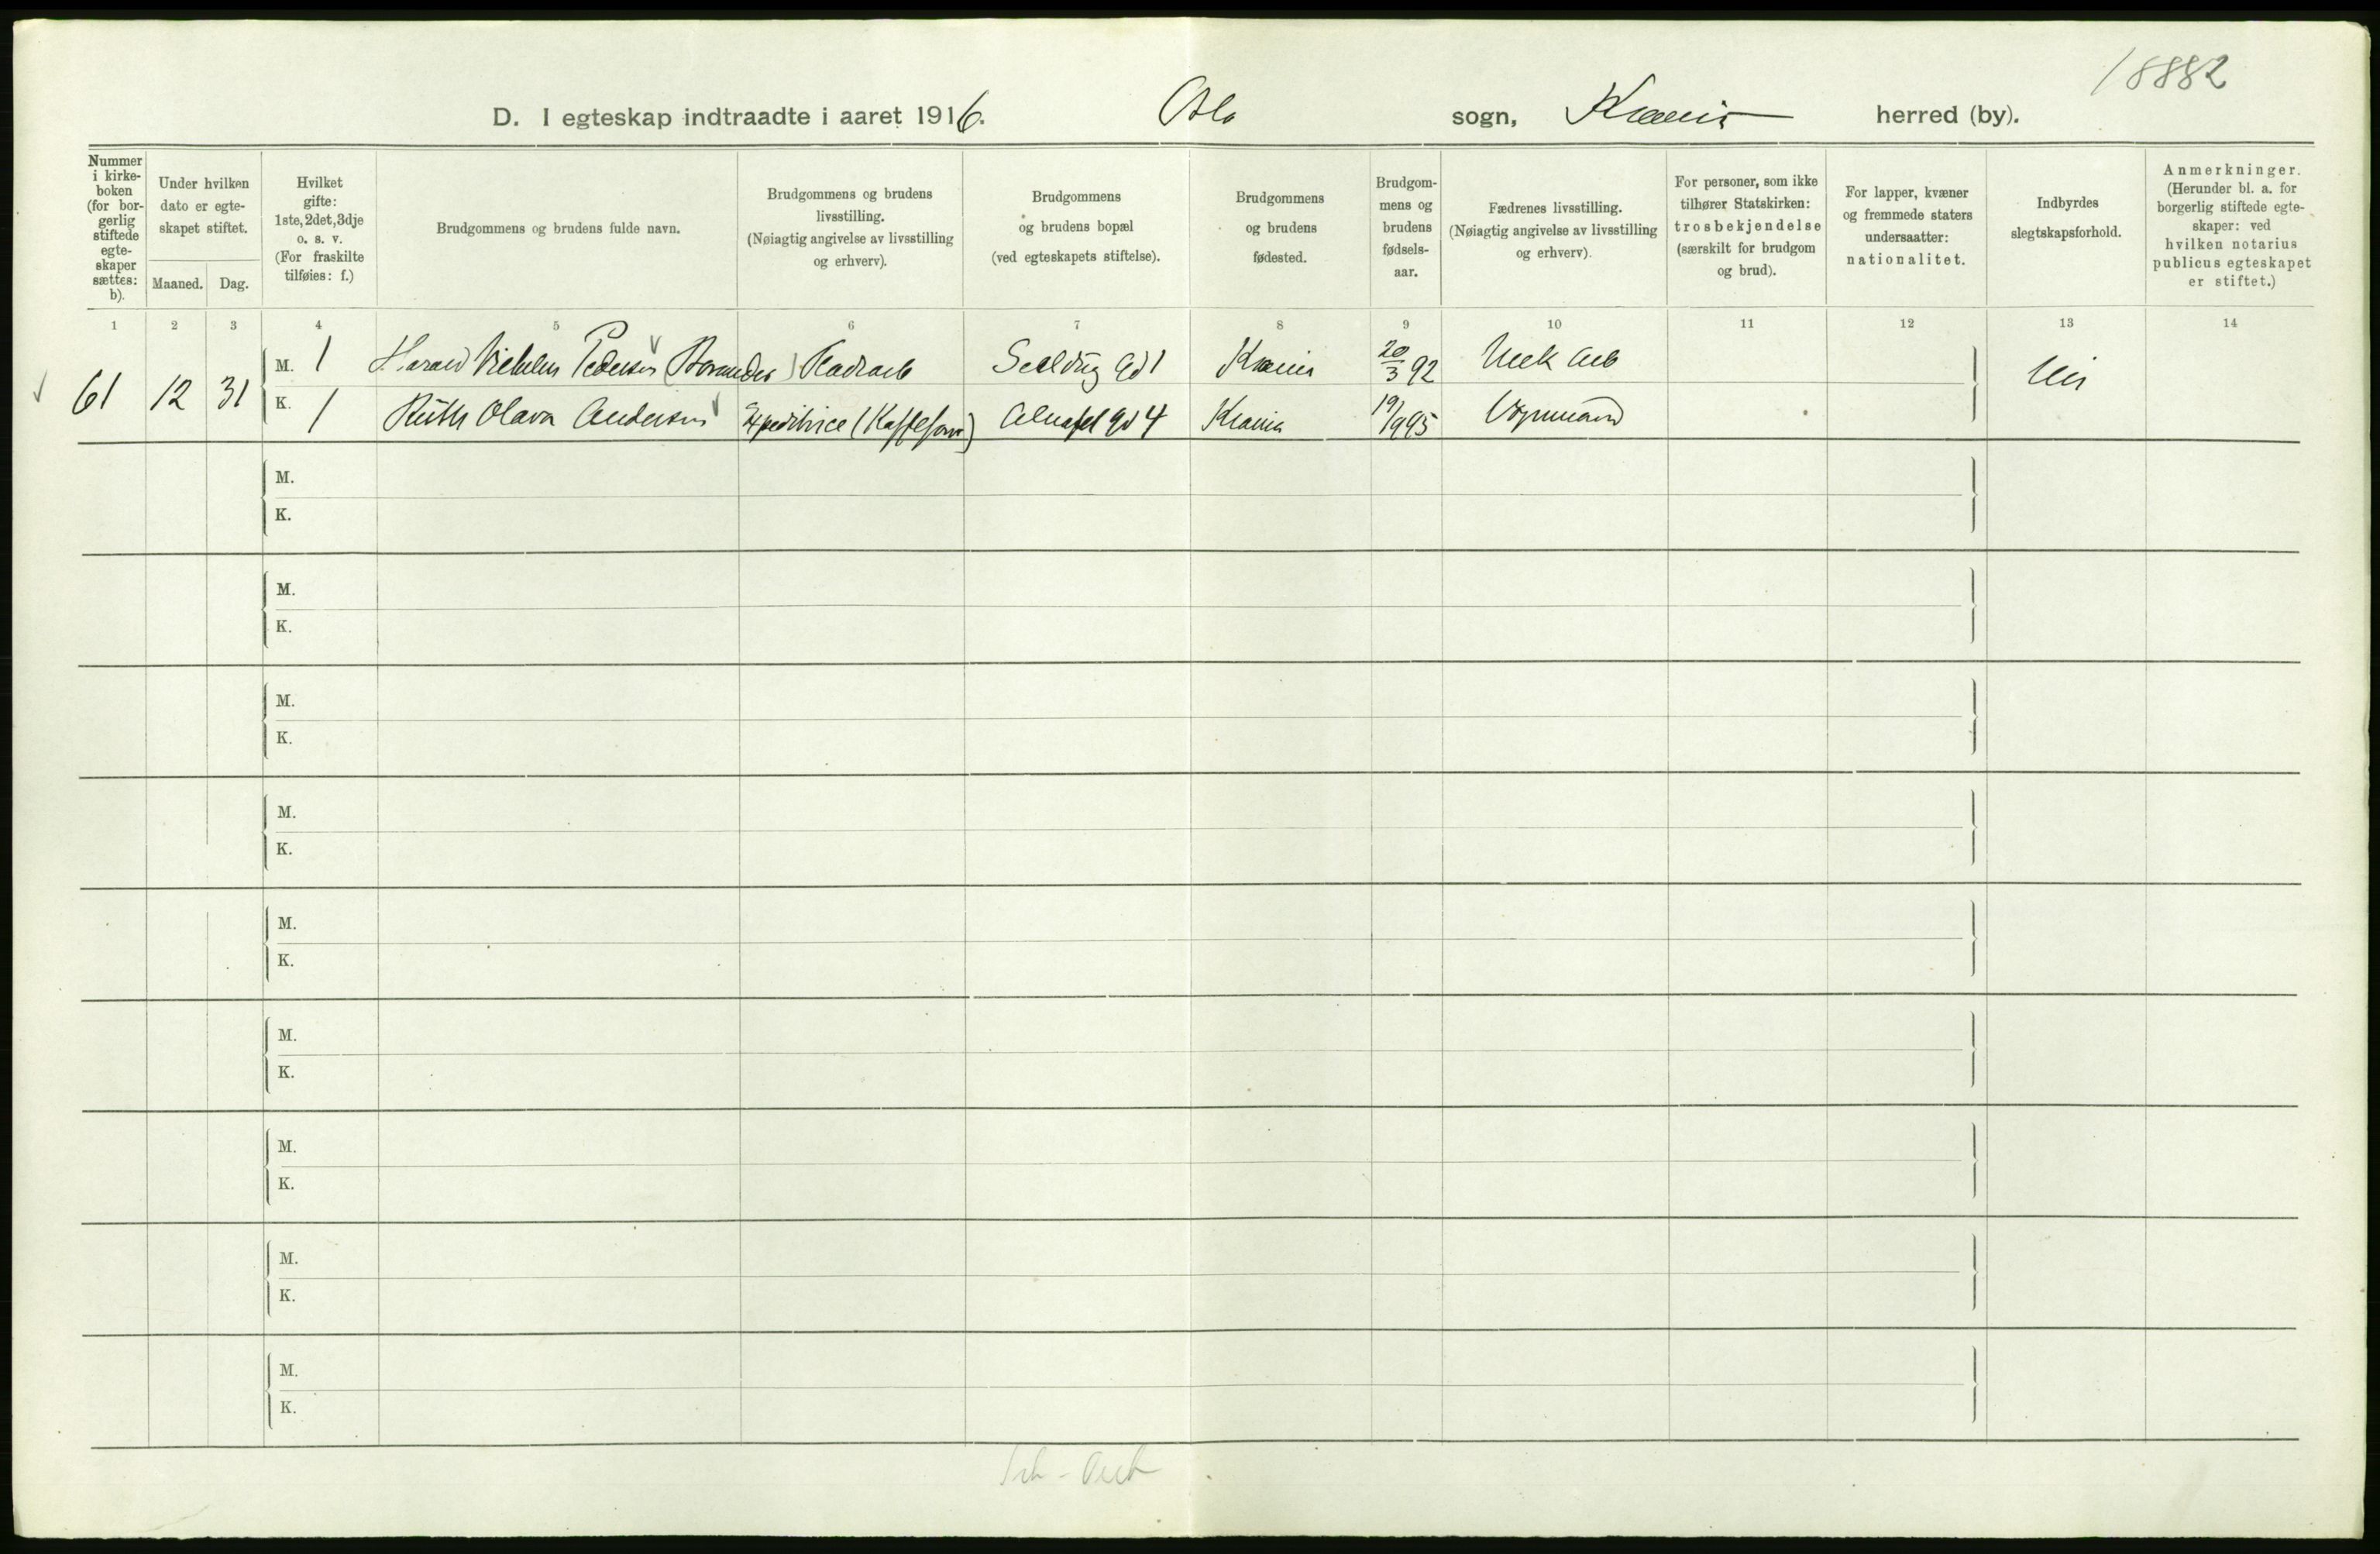 18882
D. I egteskap indtraadte i aaret 1916. Oslo sogn, Kristia herred (by).
Nummer i kirkeboken (for borgerlig stiftede egteskaper sættes: b).
Under hvilken dato er egteskapet stiftet.
Maaned. Dag.
Hvilket gifte: 1ste, 2det, 3dje o. s. v. (For fraskilte tilføies: f.)
Brudgommens og brudens fulde navn.
Brudgommens og brudens livsstilling. (Nøiagtig angivelse av livsstilling og erhverv).
Brudgommens og brudens bopæl (ved egteskapets stiftelse).
Brudgommens og brudens fødested.
Brudgommens og brudens fødselsaar.
Fædrenes livsstilling. (Nøiagtig angivelse av livsstilling og erhverv).
For personer, som ikke tilhører Statskirken: trosbekjendelse (særskilt for brudgom og brud).
For lapper, kvæner og fremmede staters undersaatter: nationalitet.
Indbyrdes slegtskapsforhold.
Anmerkninger. (Herunder bl. a. for borgerlig stiftede egteskaper: ved hvilken notarius publicus egteskapet er stiftet.)
1 2 3 4 5 6 7 8 9 10 11 12 13 14
61 12 31 M. 1 Harald Vilhelm Pedersen 1 Krania 20/3 92 Mek arb
K. 1 Ruth Olava Andersen Expeditrice Alnafet gd 4 Krania 19/9 95 Vognmand
M.
K.
M.
K.
M.
K.
M.
K.
M.
K.
M.
K.
M.
K.
M.
K.
M.
K.